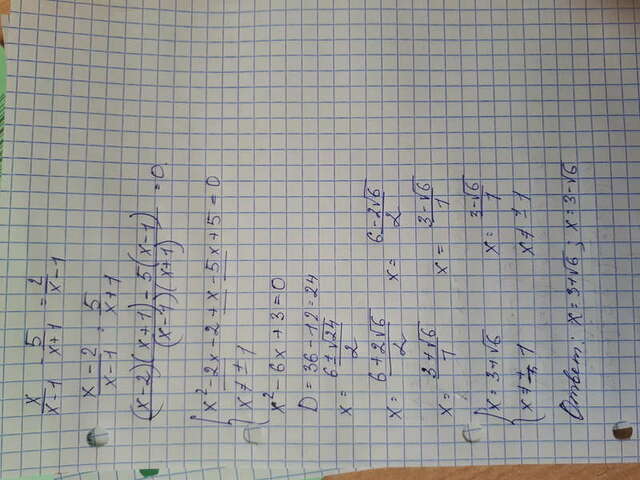 x/(x-1) - 5/(x+1) = 2/(x-1)
(x-2)/(x-1) = 5/(x+1)
((x-2)(x+1) - 5(x-1))/((x-1)(x+1)) = 0
{ x²-2x-2+x-5x+5=0
x ≠ ±1
x²-6x+3=0
D=36-12=24
x = (6±√24)/2
x = (6+2√6)/2 x = (6-2√6)/2
x = (3+√6)/1 x = (3-√6)/1
{ x=3+√6 x = (3-√6)/1
x ≠ ±1 x ≠ ±1
Ответ: x=3+√6; x=3-√6